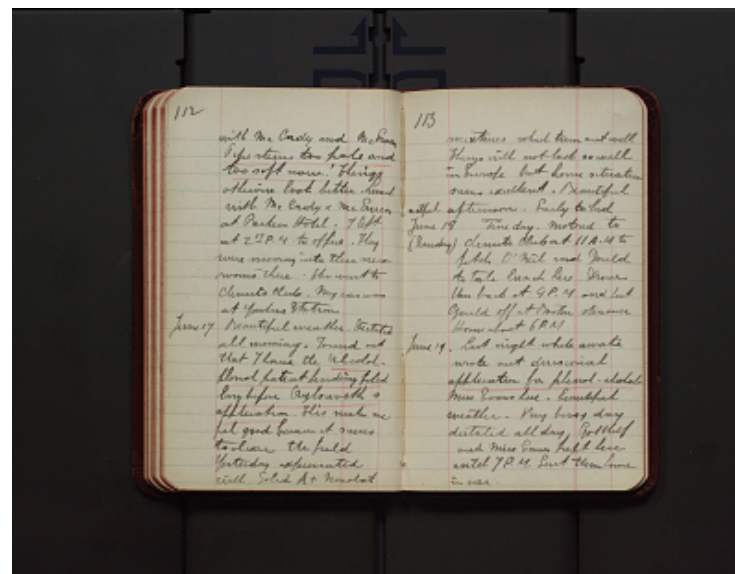 112
with Mc Cordy and McEwen
Pipe stems too pale and
too soft now! Things
otherwise look better. Lunch
with Mc Cordy & McEwen
at Parker Hotel. I left
at 2 P.M. to office. They
were moving into their new
rooms there. Then went to
Chemists Club. My car was
at Yonkers Station
June 17. Beautiful weather. Dictated
all morning. Found out
that I have the alcohol-
phenol patent pending filed
long before Aylsworth's
application. This makes me
feel good because it seems
to clear the field
Yesterday experimented
with Solid A + Novolak
113
mixtures which turn out well
Things will not look so well
in Europe but home situation
seems excellent. Beautiful
restful afternoon. Early to bed
June 18 Fine day. Motored to
(Thursday) Chemists Club at 11 A.M. to
fetch O'Neil and Gould
to take lunch here. Drove
them back at 4 P.M. and let
Gould off at Boston steamer
Home about 6 P.M.
June 19. Last night while awake
wrote out divisional
application for phenol-alcohol
Miss Evans here. Beautiful
weather. Very busy day
dictated all day. Gotthelf
and Miss Evans kept here
until 7 P.M. Sent them home
in car